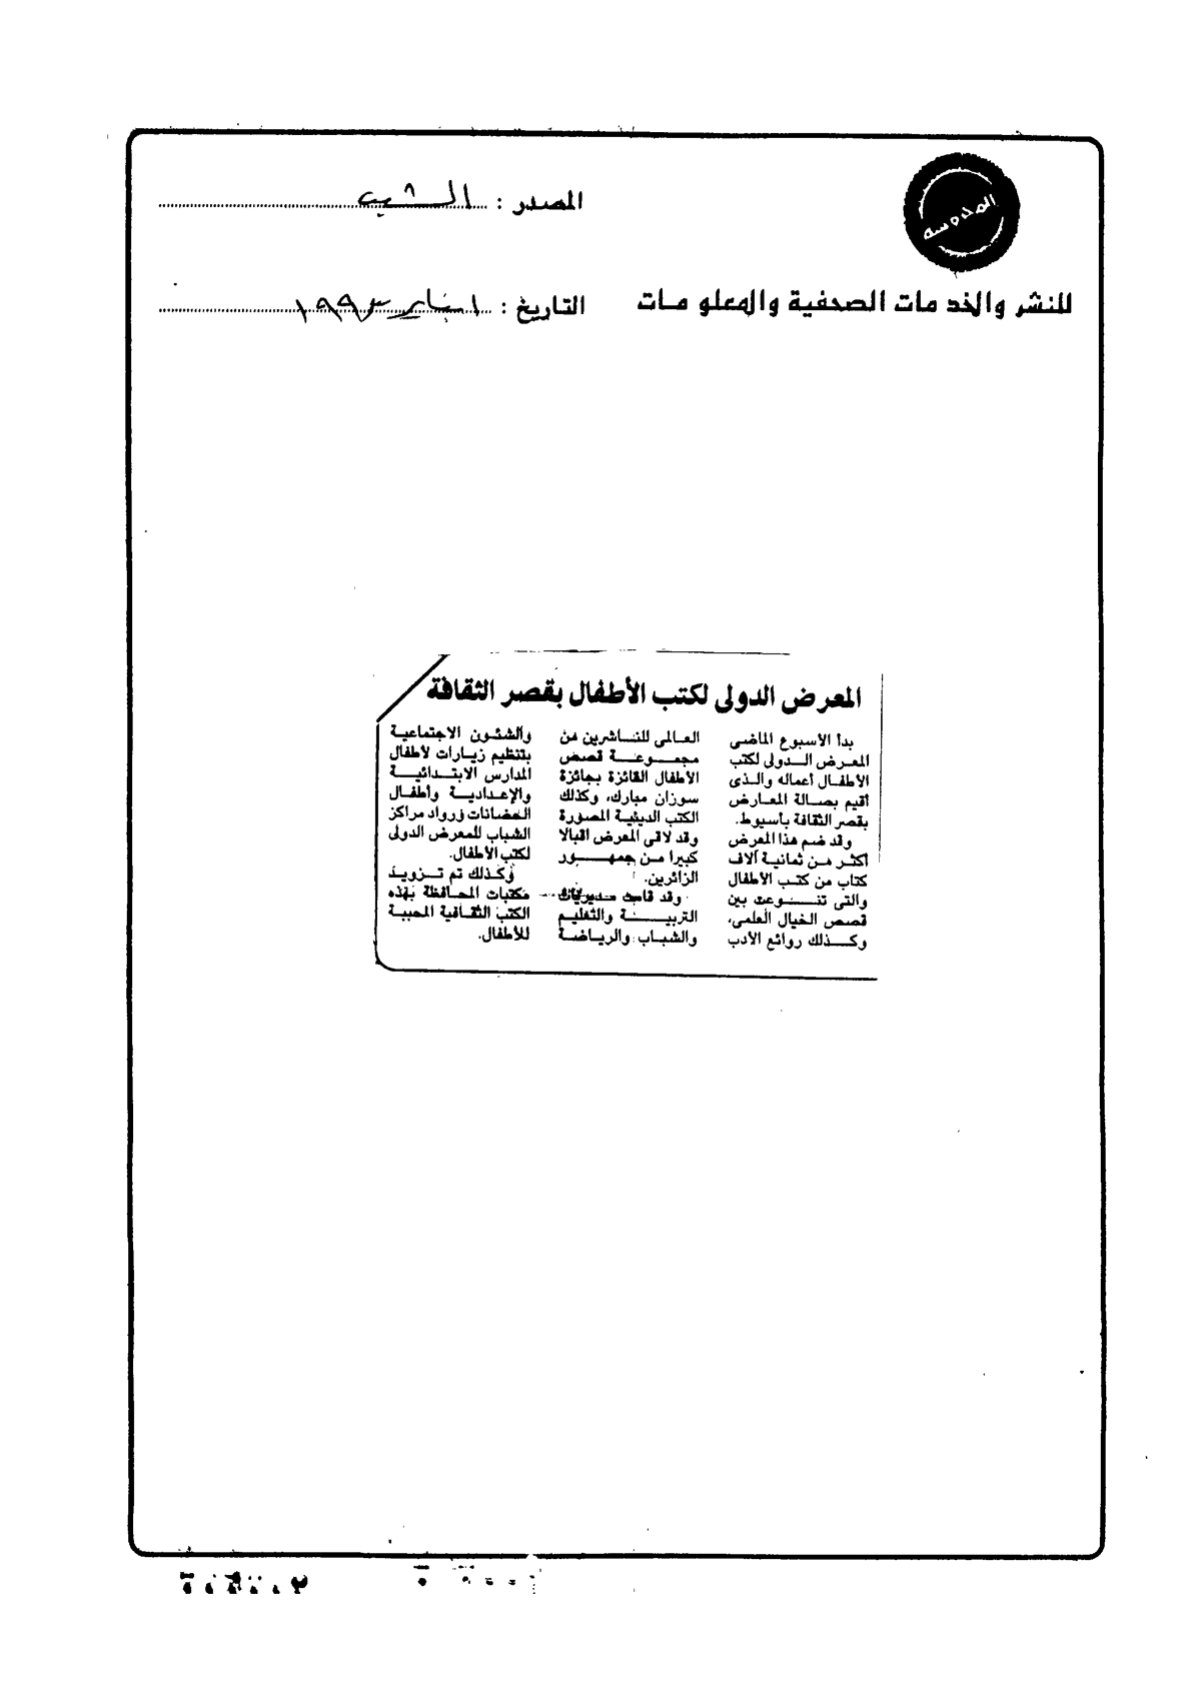 المدوسه
المصدر : الشعب
للنشر والخدمات الصحفية والمعلومات
التاريخ : ١ يناير ١٩٩٣
المعرض الدولى لكتب الأطفال بقصر الثقافة
بدأ الاسبوع الماضى
المعرض الدولى لكتب
الأطفال أعماله والذى
أقيم بصالة المعارض
بقصر الثقافة بأسيوط.
وقد ضم هذا المعرض
أكثر من ثمانية آلاف
كتاب من كتب الأطفال
والتى تنوعت بين
قصص الخيال العلمى،
وكذلك روائع الأدب
العالمى للناشرين من
مجموعة قصص
الأطفال الفائزة بجائزة
سوزان مبارك، وكذلك
الكتب الدينية المصورة
وقد لاقى المعرض اقبالا
كبيرا من جمهور
الزائرين.
وقد قامت مديريات
التربية والتعليم
والشباب والرياضة
والشئون الاجتماعية
بتنظيم زيارات لأطفال
المدارس الابتدائية
والإعدادية وأطفال
الحضانات ورواد مراكز
الشباب للمعرض الدولى
لكتب الأطفال.
وكذلك تم تزويد
مكتبات المحافظة بهذه
الكتب الثقافية المحببة
للأطفال.